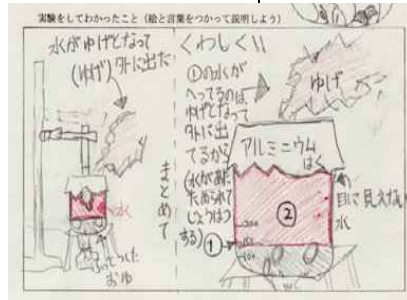 実験をしてわかったこと（絵と言葉をつかって説明しよう）
水がゆげとなって
(ゆげ)外に出た
水
ふっとうした
おゆ
まとめて
くわしく!!
①の水が
へってるのは
ゆげとなって
外に出
てるから
(水があた
ためられて
じょうはつ
する)
ゆげ
アルミニウム
はく
目に見えない
水
②
①
200
150
100